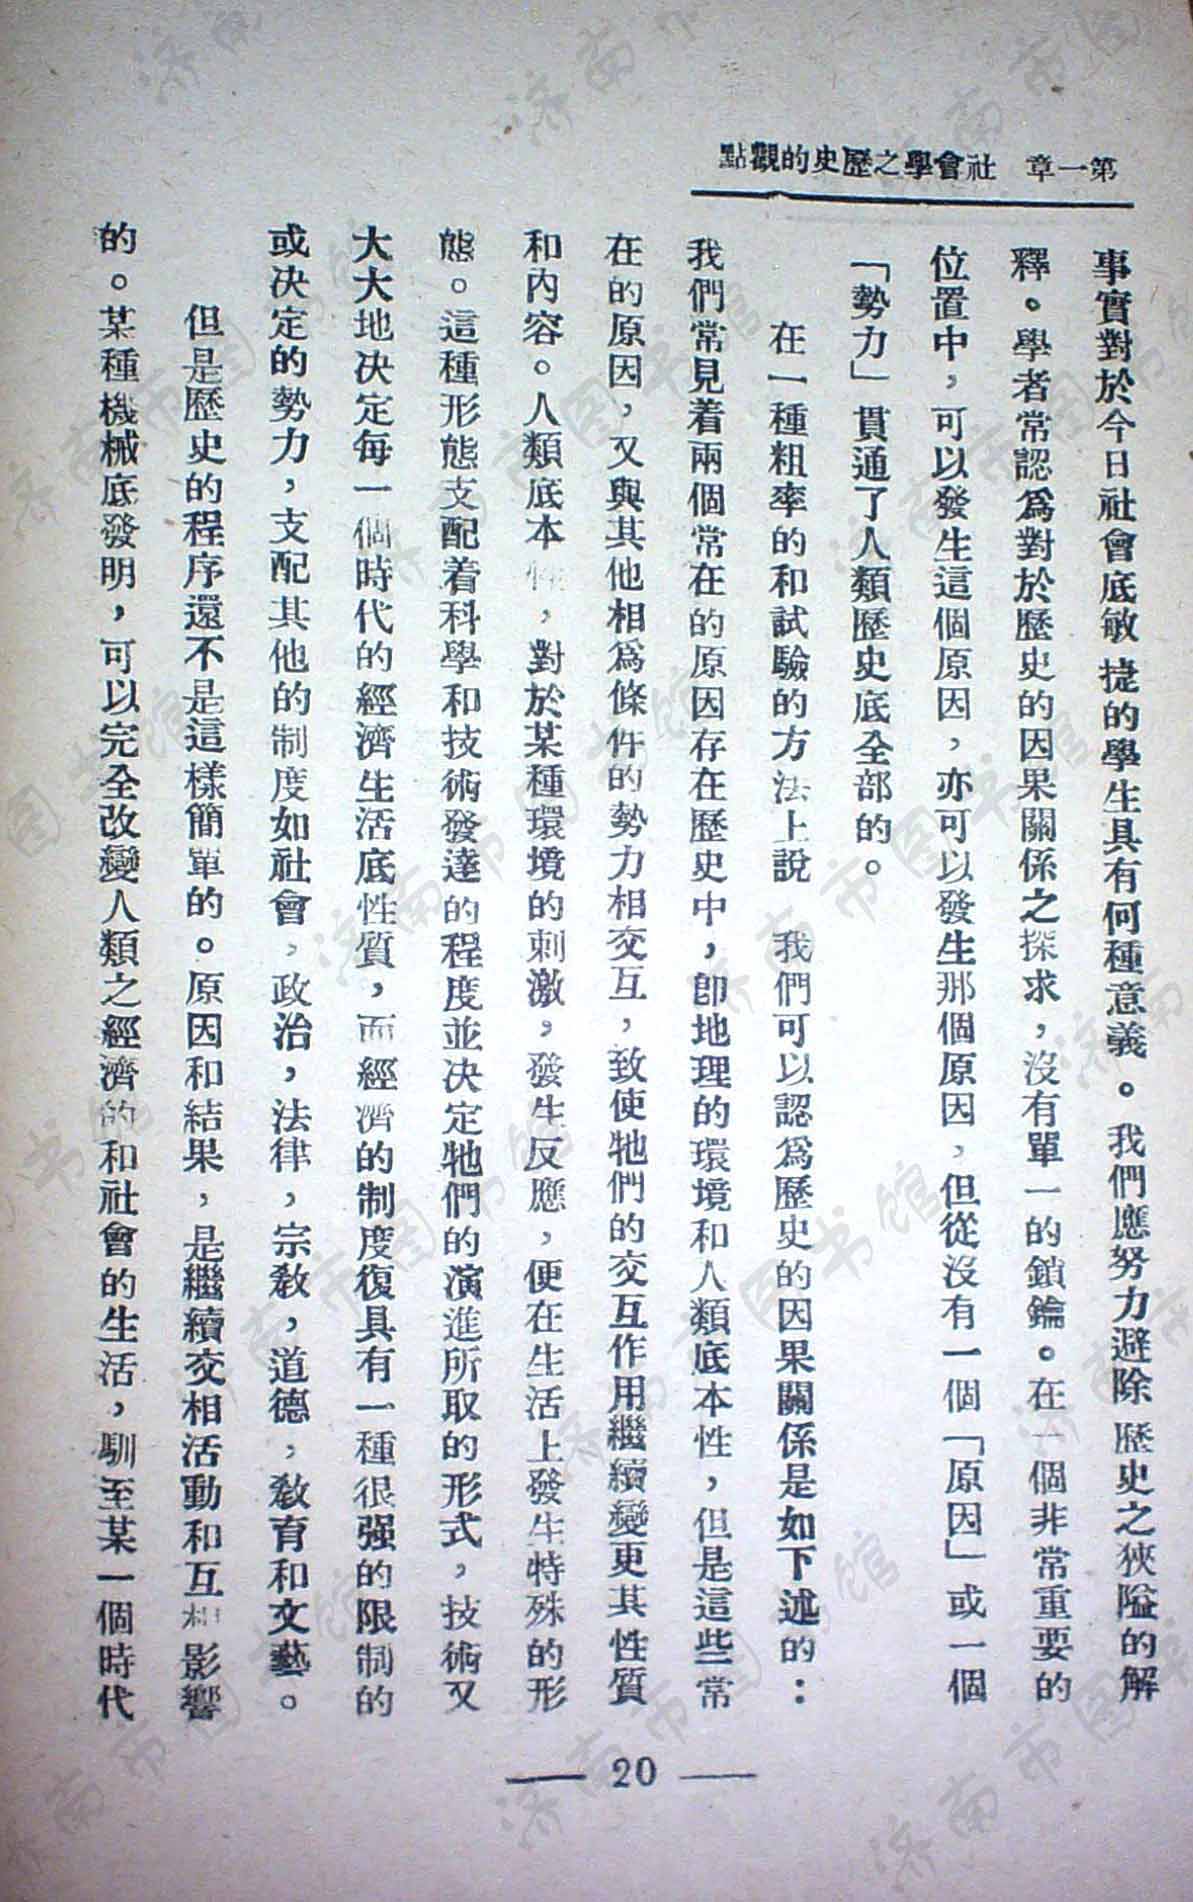 第一章 社會學之歷史的觀點
事實對於今日社會底敏捷的學生具有何種意義。我們應努力避除歷史之狹隘的解
釋。學者常認爲對於歷史的因果關係之探求，沒有單一的鎖鑰。在一個非常重要的
位置中，可以發生這個原因，亦可以發生那個原因，但從沒有一個「原因」或一個
「勢力」貫通了人類歷史底全部的。
在一種粗率的和試驗的方法上說 我們可以認爲歷史的因果關係是如下述的：
我們常見着兩個常在的原因存在歷史中，卽地理的環境和人類底本性，但是這些常
在的原因，又與其他相爲條件的勢力相交互，致使牠們的交互作用繼續變更其性質
和內容。人類底本性，對於某種環境的刺激，發生反應，便在生活上發生特殊的形
態。這種形態支配着科學和技術發達的程度並決定牠們的演進所取的形式，技術又
大大地決定每一個時代的經濟生活底性質，而經濟的制度復具有一種很强的限制的
或決定的勢力，支配其他的制度如社會，政治，法律，宗敎，道德，敎育和文藝。
但是歷史的程序還不是這樣簡單的。原因和結果，是繼續交相活動和互相影響
的。某種機械底發明，可以完全改變人類之經濟的和社會的生活，馴至某一個時代
— 20 —
济南市图书馆